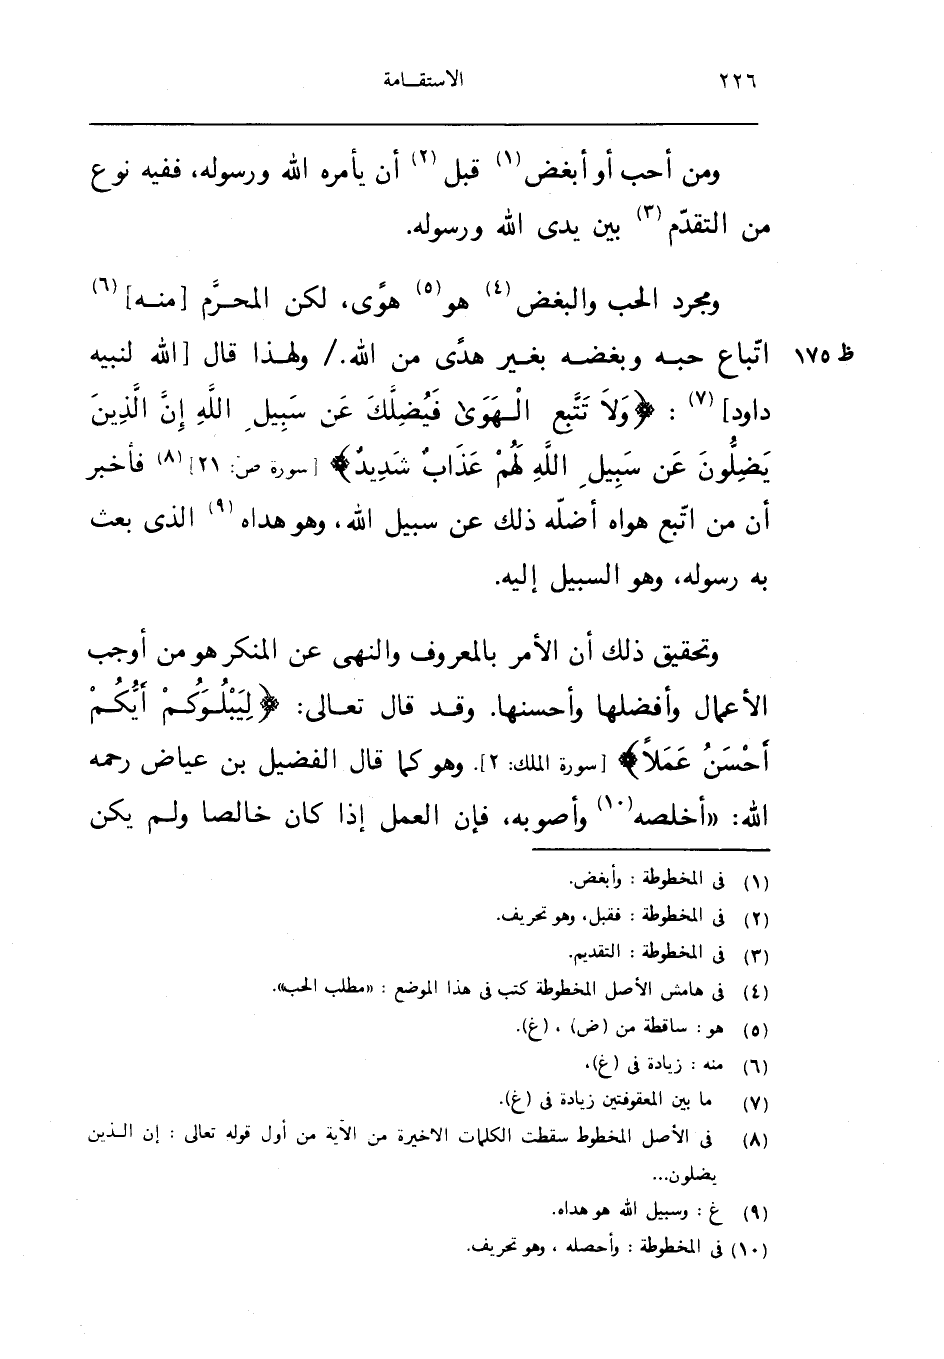 ٢٢٦ الاستقامة
ومن أحب أو أبغض(١) قبل(٢) أن يأمره الله ورسوله، ففيه نوع
من التقدّم(٣) بين يدى الله ورسوله.
ومجرد الحب والبغض(٤) هو(٥) هوًى، لكن المحرَّم [منه](٦)
ظ ١٧٥ اتّباع حبه وبغضه بغير هدًى من الله./ ولهذا قال [الله لنبيه
داود](٧) : ﴿وَلاَ تَتَّبِعِ الْهَوَىٰ فَيُضِلَّكَ عَن سَبِيلِ اللَّهِ إِنَّ الَّذِينَ
يَضِلُّونَ عَن سَبِيلِ اللَّهِ لَهُمْ عَذَابٌ شَدِيدٌ﴾ [سورة ص: ٢١](٨) فأخبر
أن من اتّبع هواه أضلّه ذلك عن سبيل الله، وهو هداه(٩) الذى بعث
به رسوله، وهو السبيل إليه.
وتحقيق ذلك أن الأمر بالمعروف والنهى عن المنكر هو من أوجب
الأعمال وأفضلها وأحسنها. وقد قال تعالى: ﴿لِيَبْلُوَكُمْ أَيُّكُمْ
أَحْسَنُ عَمَلاً﴾ [سورة الملك: ٢]. وهو كما قال الفضيل بن عياض رحمه
الله: «أخلصه(١٠) وأصوبه، فإن العمل إذا كان خالصا ولم يكن
(١) فى المخطوطة : وأبغض.
(٢) فى المخطوطة : فقبل، وهو تحريف.
(٣) فى المخطوطة : التقديم.
(٤) فى هامش الأصل المخطوطة كتب فى هذا الموضع : «مطلب الحب».
(٥) هو : ساقطة من (ض) ، (غ).
(٦) منه : زيادة فى (غ).
(٧) ما بين المعقوفتين زيادة فى (غ).
(٨) فى الأصل المخطوط سقطت الكلمات الاخيرة من الآية من أول قوله تعالى : إن الذين
يضلون...
(٩) غ : وسبيل الله هو هداه.
(١٠) فى المخطوطة : وأحصله ، وهو تحريف.